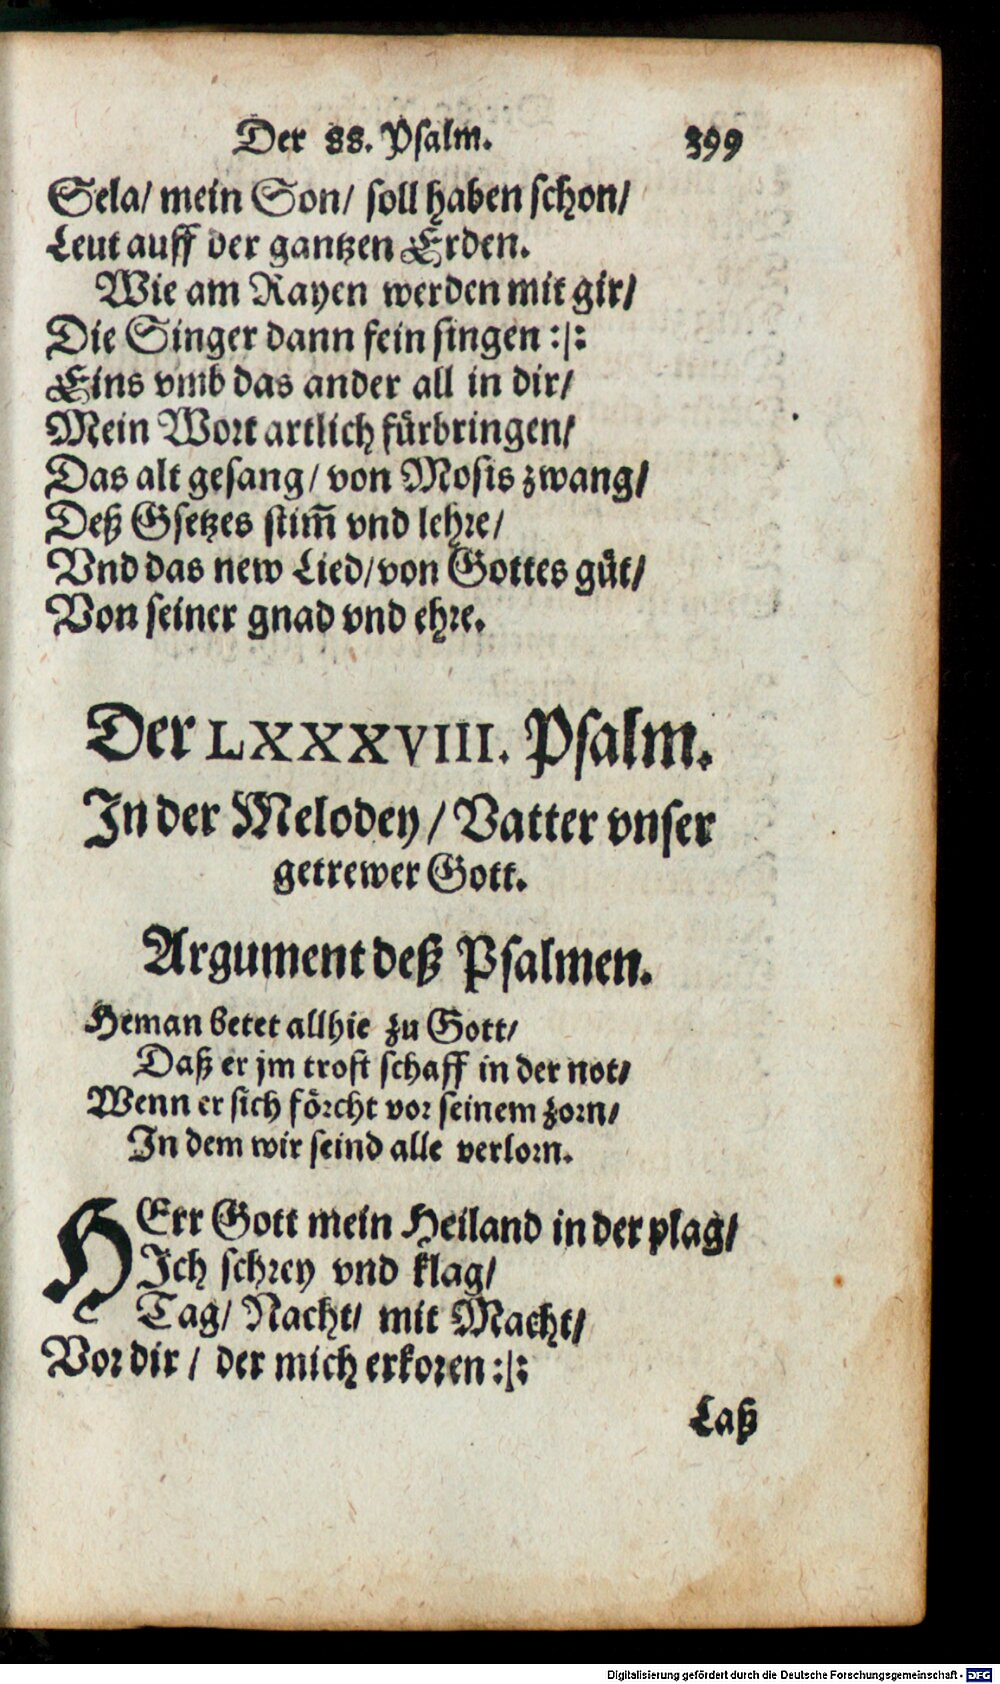 Der 88. Psalm. 399
Sela/ mein Son/ soll haben schon/
Leut auff der gantzen Erden.
Wie am Rayen werden mit gir/
Die Singer dann fein singen :|:
Eins vmb das ander all in dir/
Mein Wort artlich fürbringen/
Das alt gesang/ von Mosis zwang/
Deß Gsetzes stim̃ vnd lehre/
Vnd das new Lied/ von Gottes güt/
Von seiner gnad vnd ehre.
Der LXXXVIII. Psalm.
In der Melodey/ Vatter vnser
getrewer Gott.
Argument deß Psalmen.
Heman betet allhie zu Gott/
Daß er jm trost schaff in der not/
Wenn er sich förcht vor seinem zorn/
In dem wir seind alle verlorn.
HErr Gott mein Heiland in der plag/
Ich schrey vnd klag/
Tag/ Nacht/ mit Macht/
Vor dir/ der mich erkoren :|:
Laß
Digitalisierung gefördert durch die Deutsche Forschungsgemeinschaft - DFG